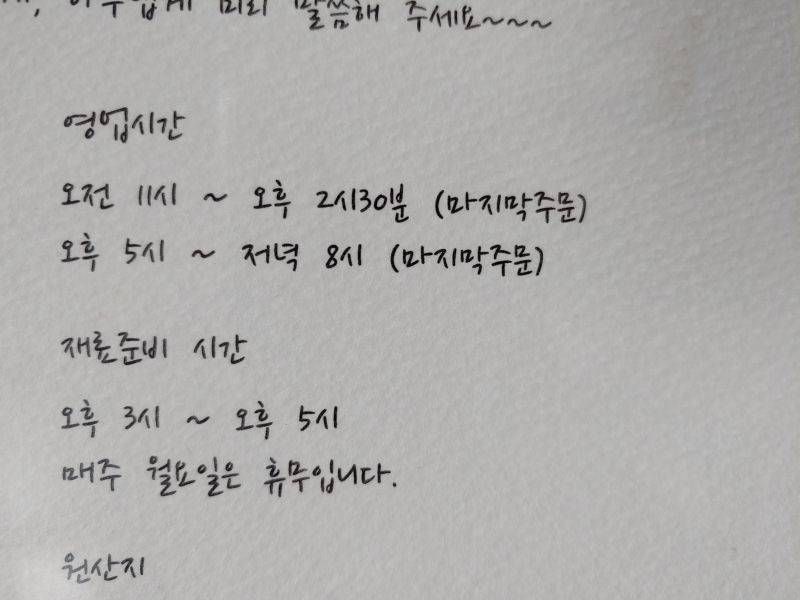 미리 말씀해 주세요~~~
영업시간
오전 11시 ~ 오후 2시30분 (마지막주문)
오후 5시 ~ 저녁 8시 (마지막주문)
재료준비 시간
오후 3시 ~ 오후 5시
매주 월요일은 휴무입니다.
원산지